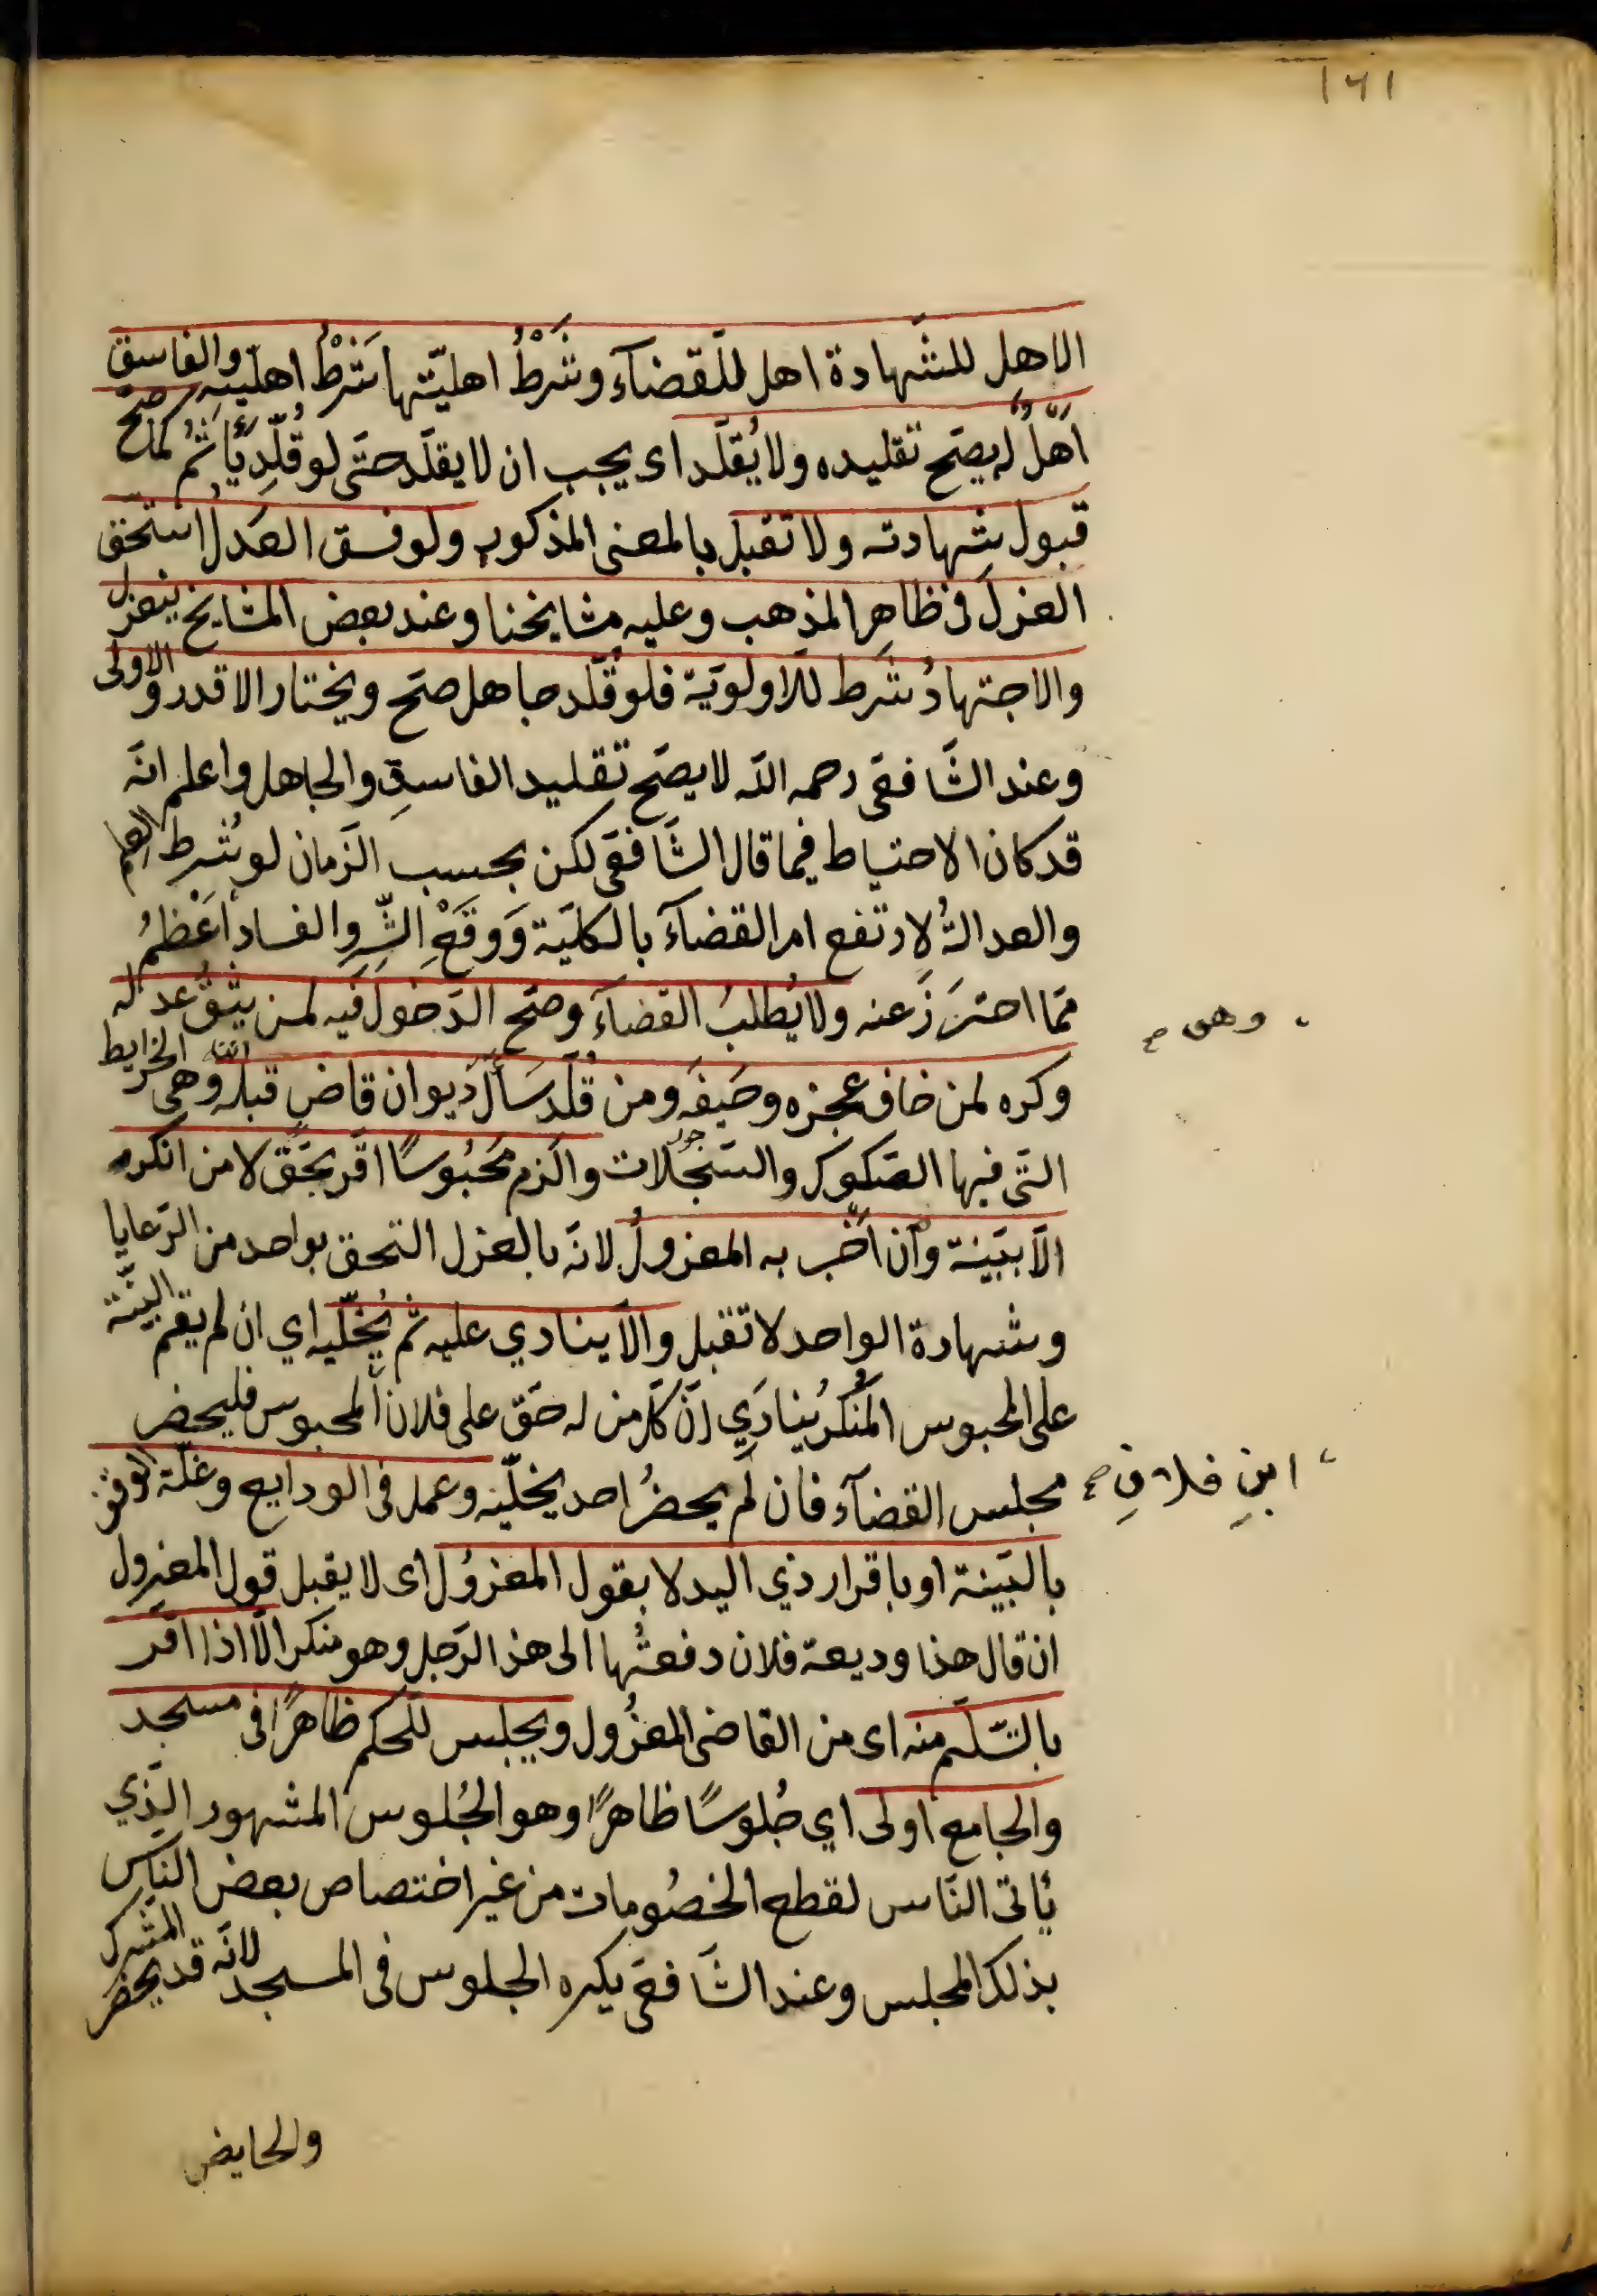 ١٦١
الاهل للشهادة اهل للقضآء وشَرْطُ اهليّتها شَرْطُ اهليته والفاسق
اَهْلٌ له يصحّ تقليده ولا يُقلّد اى يجب ان لا يقلّد حتّى لو قُلّد يأثم كما صحّ
قبول شهادته ولا تقبل بالمعنى المذكور ولو فسق العَدل استحق
العزل فى ظاهر المذهب وعليه مشايخنا وعند بعض المشايخ ينعزل
والاجتهادُ شَرط للاولويّة فلو قُلّد جاهل صحّ ويختار الاقدر والاولى
وعند الشّافعىّ رحمه اللّه لا يصحّ تقليد الفاسق والجاهل واعلم انّه
قد كان الاحتياط فيما قال الشّافعىّ لكن بحسب الزّمان لو شُرط العلم
والعدالةُ لارتفع امر القضآء بالكليّة وَوقع الشّر والفساد اعظمُ
ممّا احترَزَ عنه ولا يُطلبُ القضآء وصحّ الدّخول فيه لمن يثق عدله
وهى صح
وكره لمن خاف عجزه وحيفه ومن قُلّد سَأل ديوان قاضٍ قبله وهى الخرايط
التّى فيها الصّكوك والسّجلّات والزم محبُوسًا اقرّ بحقّ لا من انكره
الّا ببيّنة وان اخبر به المعزولُ لانّه بالعزل التحق بواحد من الرّعايا
وشهادة الواحد لا تقبل والّا ينادي عليه ثم يُخلّيه اي ان لم يقم البيّنة
على المحبوس المُنكر يُنادَي انّ كلّ من له حقّ على فلان المحبوس فليحضر
ابنِ فلانٍ صح
مجلس القضآء فان لم يحضُر احد يخلّيه وعمل فى الودايع وغلّة الوقف
بالبّينة او باقرار ذي اليد لا بقول المعزوُل اى لا يقبل قول المعزول
ان قال هذا وديعة فلان دفعتُها الى هذا الرّجل وهو منكر الّا اذا اقر
بالتّسلّم منه اى من القاضى المعزُول ويجلس للحكم ظاهرًا فى مسجد
والجامع اولى اي جُلوسًا ظاهرًا وهو الجُلوس المشهور الّذي
يأتى النّاس لقطع الخصُومات من غير اختصاص بعض النّاس
بذلك المجلس وعند الشّافعىّ يكره الجلوس فى المسجد لانّه قد يحضر المشرك
والحايض